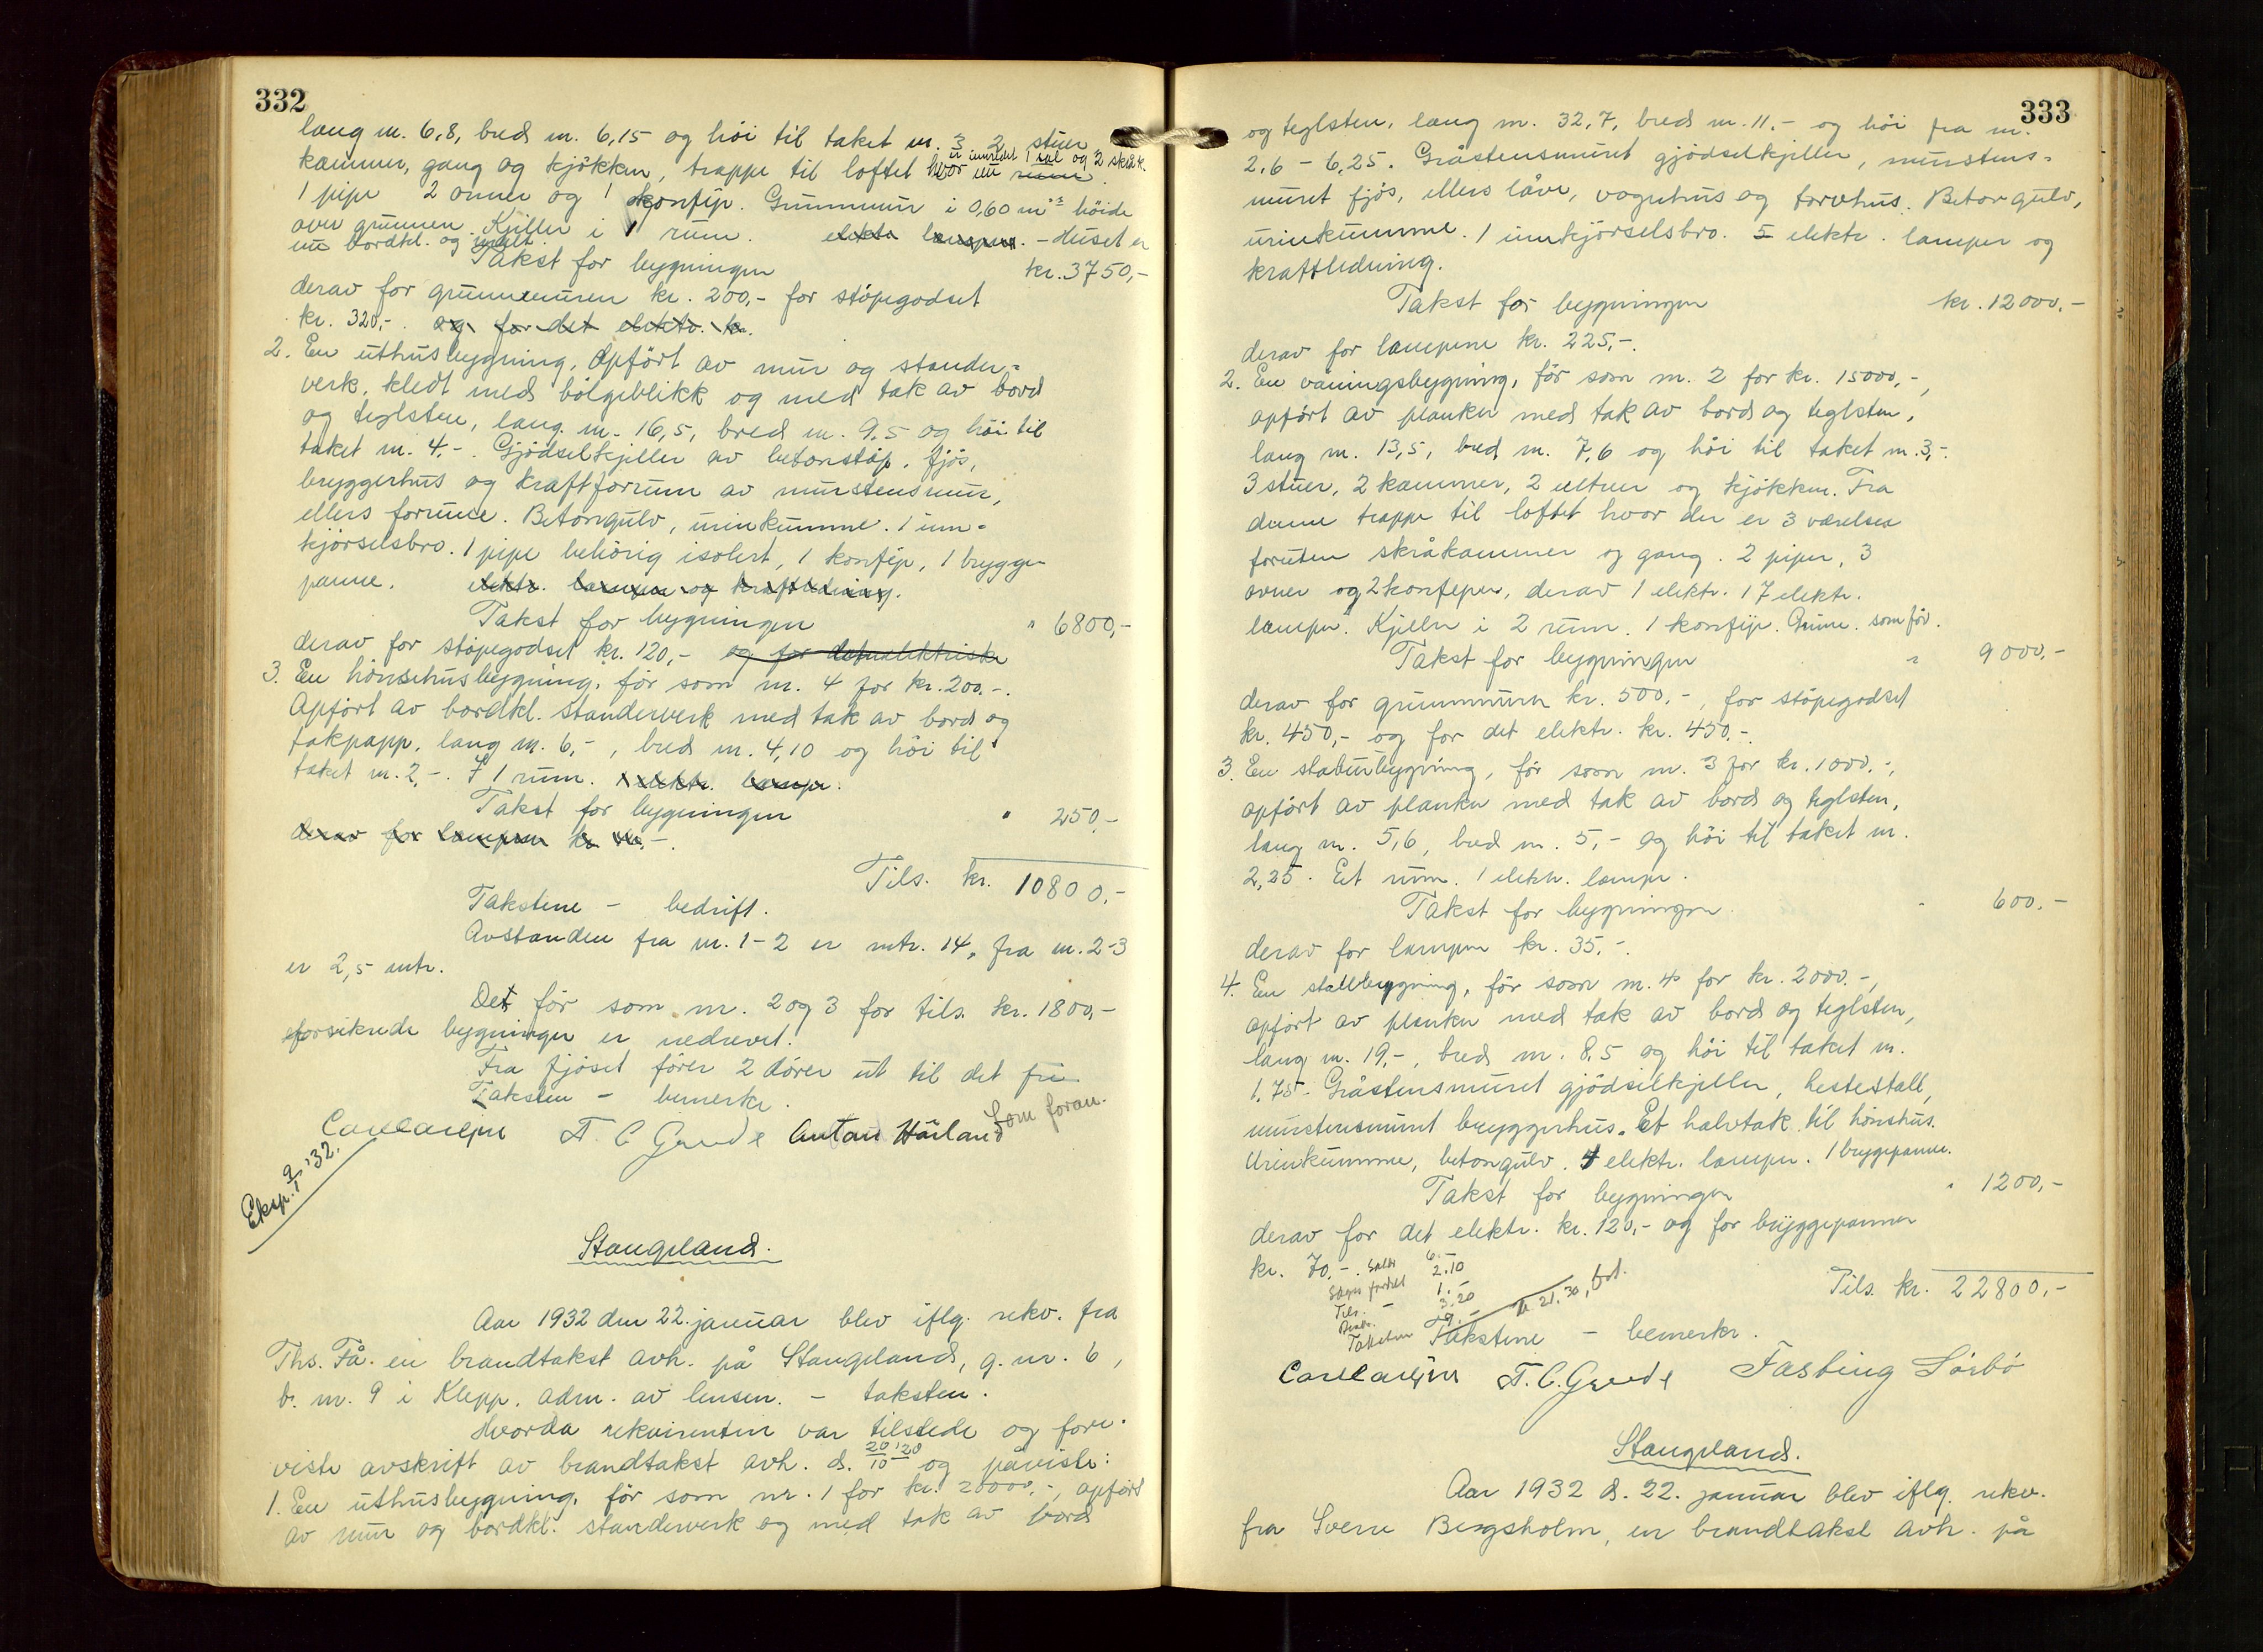 332
lang m. 6,8, bred m. 6,15 og höi til taket m. 3 2 stuer
kammer, gang og kjökken, trappe til loftet hvor
er innredet 1 sal og 2 skråk.
1 pipe 2 ovner og 1 komfyr. Grunnmur i 0,60 m's höide
over grunnen. Kjeller i 1 rum. elektr. lamper. - Huset er
nu bordkl. og malt.
Takst for bygningen kr. 3750,-
derav for grunnmuren kr. 200,- for stöpegodset
kr. 320,-. og for det elektr. kr.
2. En uthusbygning, opfört av mur og stander-
verk, kledt med bölgeblikk og med tak av bord
og teglsten, lang m. 16,5, bred m. 9,5 og höi til
taket m. 4,-. Gjödselkjeller av betonstöp, fjös,
bryggerhus og kraftforrum av murstensmur,
ellers forrum. Betongulv, urinkumme. 1 inn-
kjörselsbro. 1 pipe behörig isolert, 1 komfyr, 1 brygge-
panne. elektr. lamper og kraftledning.
Takst for bygningen " 6800,-
derav for stöpegodset kr. 120,- og for det elektriske
3. En hönsehusbygning, för som nr. 4 for kr. 200.-.
Opfört av bordkl. standerverk med tak av bord og
takpapp, lang m. 6,-, bred m. 4,10 og höi til
taket m. 2,-. I 1 rum. 1 elektr. lampe.
Takst for bygningen " 250,-
derav for lampen kr.
Tils. kr. 10800,-
Takstene - bedrift.
Avstanden fra nr. 1-2 er mtr. 14, fra nr. 2-3
er 2,5 mtr.
Det för som nr. 2 og 3 for tils. kr. 1800,-
forsikrede bygninger er nedrevet.
Fra fjöset förer 2 dörer ut til det fri
Taksten - bemerkr.
Som foran.
T. C. Grude Anton Håland
Eksp. 9/1 '32.
Stangeland.
Aar 1932 den 22. januar blev iflg. rekv. fra
Ths. Få. en brandtakst avh. på Stangeland, g. nr. 6,
b. nr. 9 i Klepp, adm. av lensm. - taksten.
Hvorda rekvirenten var tilstede og fore-
viste avskrift av brandtakst avh. d. 20/10 '20 og påviste:
1. En uthusbygning, för som nr. 1 for kr. 20000,-, opfört
av mur og bordkl. standerverk og med tak av bord
333
og teglsten, lang m. 32,7, bred m. 11,- og höi fra m.
2,6 - 6,25. Gråstensmuret gjödselkjeller, murstens-
muret fjös, ellers låve, vognhus og torvhus. Betongulv,
urinkumme. 1 innkjörselsbro. 5 elektr. lamper og
kraftledning.
Takst for bygningen kr. 12000,-
derav for lampene kr. 225,-.
2. En våningsbygning, för som nr. 2 for kr. 15000,-,
opfört av planker med tak av bord og teglsten,
lang m. 13,5, bred m. 7,6 og höi til taket m. 3,-.
3 stuer, 2 kammer, 2 entreer og kjökken. Fra
denne trappe til loftet hvor der er 3 værelser
foruten skråkammer og gang. 2 piper, 3
ovner og 2 komfyrer, derav 1 elektr. 17 elektr.
lamper. Kjeller i 2 rum. 1 komfyr. Grunnm. som för.
Takst for bygningen " 9000,-
derav for grunnmuren kr. 500,-, for stöpegodset
kr. 450,- og for det elektr. kr. 450,-.
3. En stabursbygning, för som nr. 3 for kr. 1000.-,
opfört av planker med tak av bord og teglsten,
lang m. 5,6, bred m. 5,- og höi til taket m.
2,25. Et rum. 1 elektr. lampe.
Takst for bygningen " 600,-
derav for lampen kr. 35,-.
4. En stallbygning, för som nr. 4 for kr. 2000.-,
opfört av planker med tak av bord og teglsten,
lang m. 19,-, bred m. 8,5 og höi til taket m.
1,75. Gråstensmuret gjödselkjeller, hestestall,
murstensmuret bryggerhus. Et halvtak til hönshus.
Urinkumme, betongulv. 4 elektr. lamper. 1 bryggepanne.
Takst for bygningen " 1200,-
derav for det elektr. kr. 120,- og for bryggepannen
kr. 70,-.
6.-
2.10
1.-
Tils. - 3.20
9.-
kr. 21.30, bet.
Tils. kr. 22800,-
Takstene - bemerkr.
T. C. Grude Fasting Sörbö
Stangeland.
Aar 1932 d. 22. januar blev iflg. rekv.
fra Sverre Bergsholm, en brandtakst avh. på